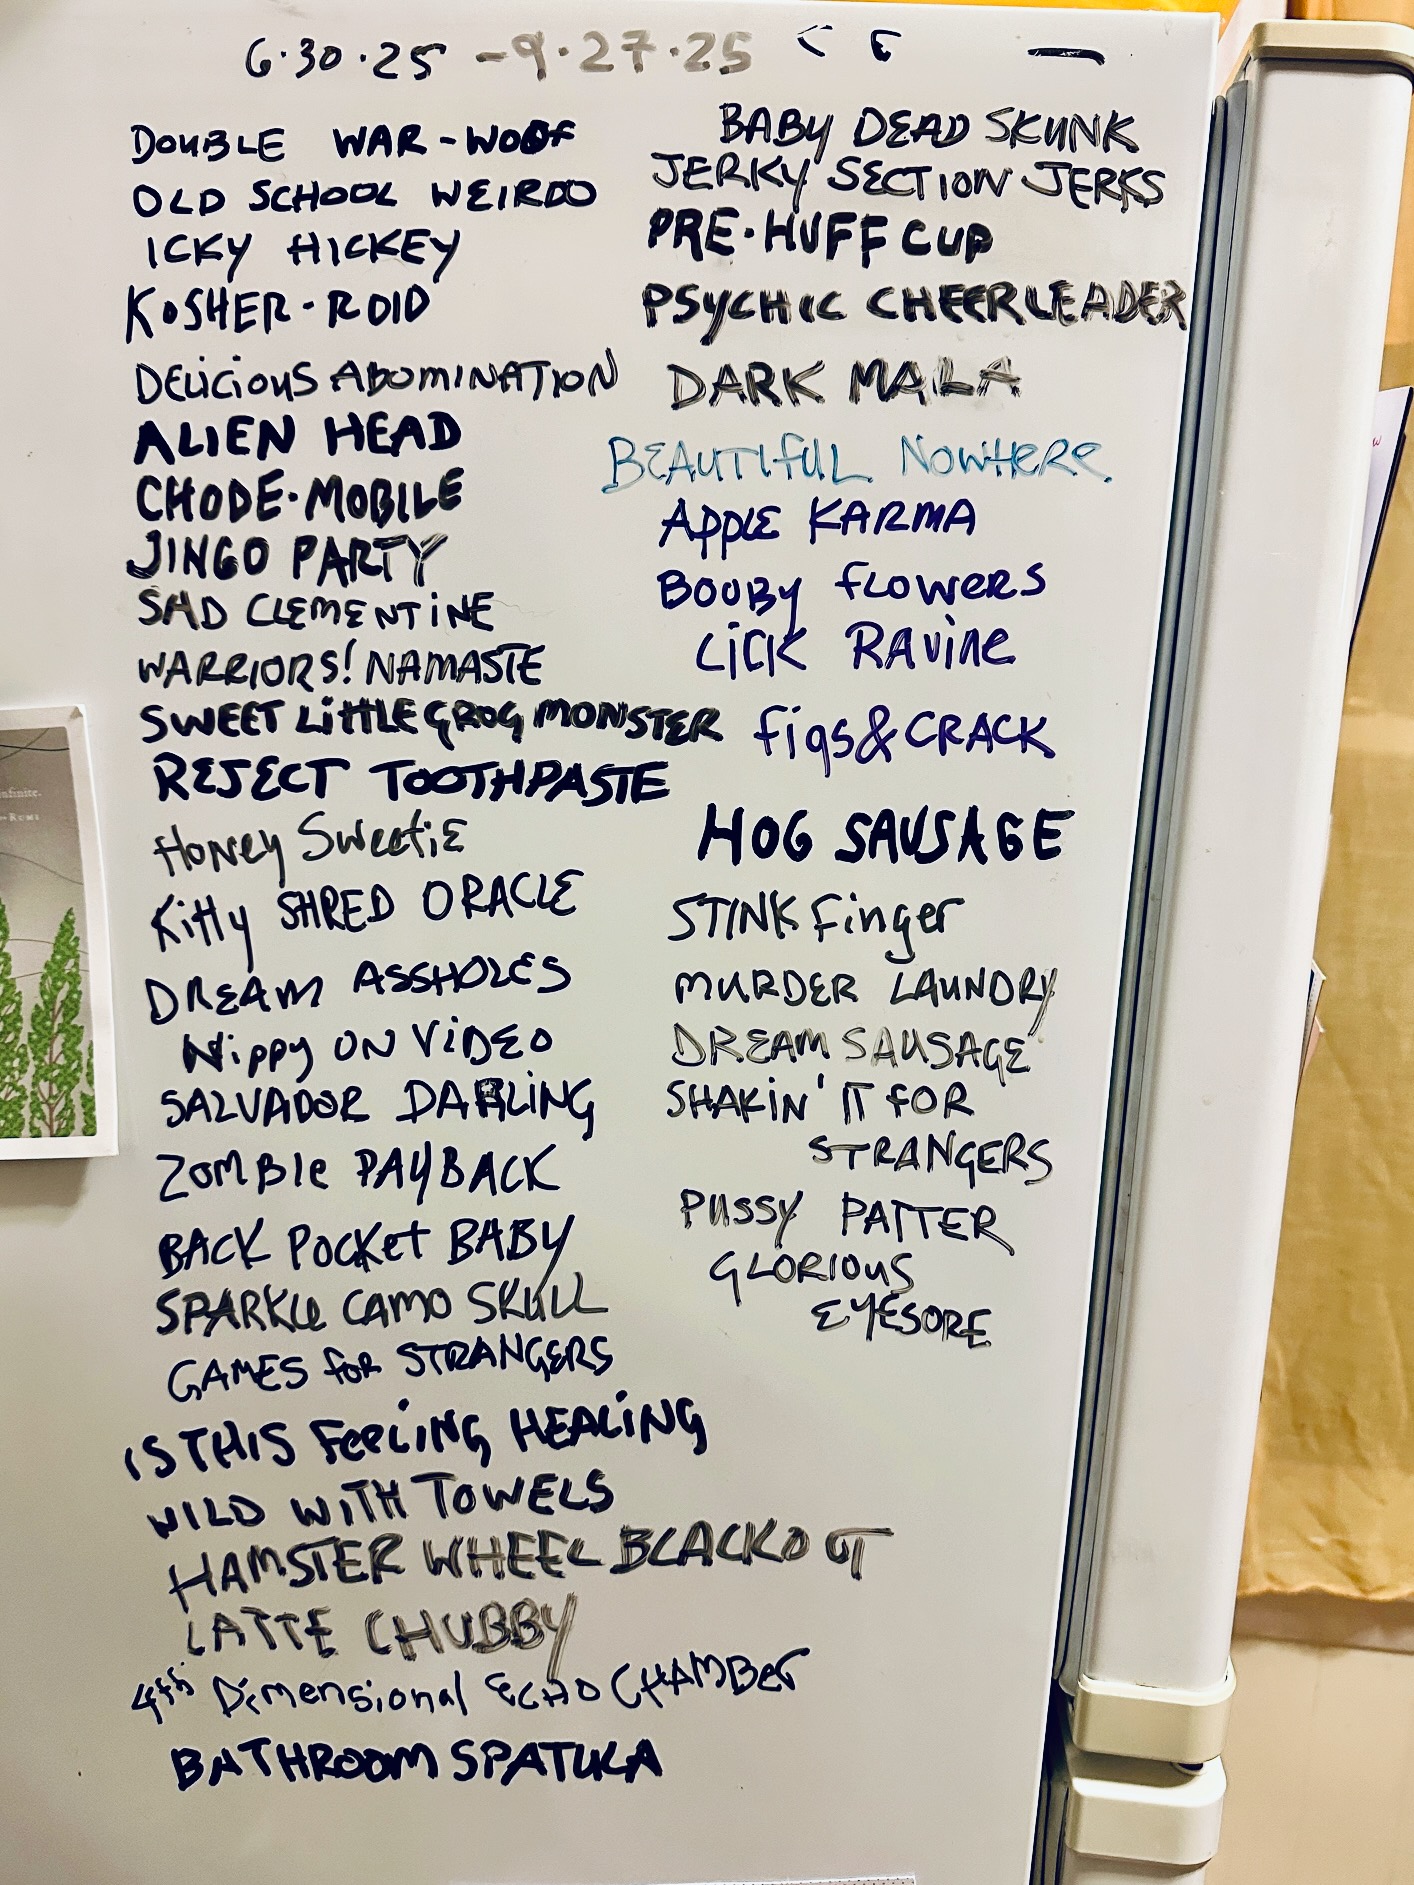 6·30·25 -9·27·25
DOUBLE WAR-WOOF
OLD SCHOOL WEIRDO
ICKY HICKEY
KOSHER-ROID
DELICIOUS ABOMINATION
ALIEN HEAD
CHODE-MOBILE
JINGO PARTY
SAD CLEMENTINE
WARRIORS! NAMASTE
SWEET LITTLE GROG MONSTER
REJECT TOOTHPASTE
HONEY SWEETIE
Kitty SHRED ORACLE
DREAM ASSHOLES
Nippy ON VIDEO
SALVADOR DARLING
ZOMBIE PAYBACK
BACK POCKET BABY
SPARKLE CAMO SKULL
GAMES FOR STRANGERS
IS THIS FEELING HEALING
WILD WITH TOWELS
HAMSTER WHEEL BLACKOUT
LATTE CHUBBY
4th Dimensional ECHO CHAMBER
BATHROOM SPATULA
BABY DEAD SKUNK
JERKY SECTION JERKS
PRE-HUFF CUP
PSYCHIC CHEERLEADER
DARK MALA
BEAUTIFUL NOWHERE
APPLE KARMA
BOOBY FLOWERS
LICK RAVINE
figs & CRACK
HOG SAUSAGE
STINK finger
MURDER LAUNDRY
DREAM SAUSAGE
SHAKIN' IT FOR
STRANGERS
PUSSY PATTER
GLORIOUS
EYESORE
infinite.
-RUMI